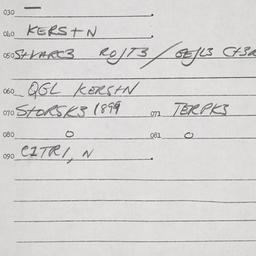 030 —
040 KERS+N
050 S+VARC3 ROJT3 / GEJL3 C+3R
060 QGL KERS+N
070 S+ORSK3 1899 071 TERPK3
080 0 081 0
090 CITRI, N